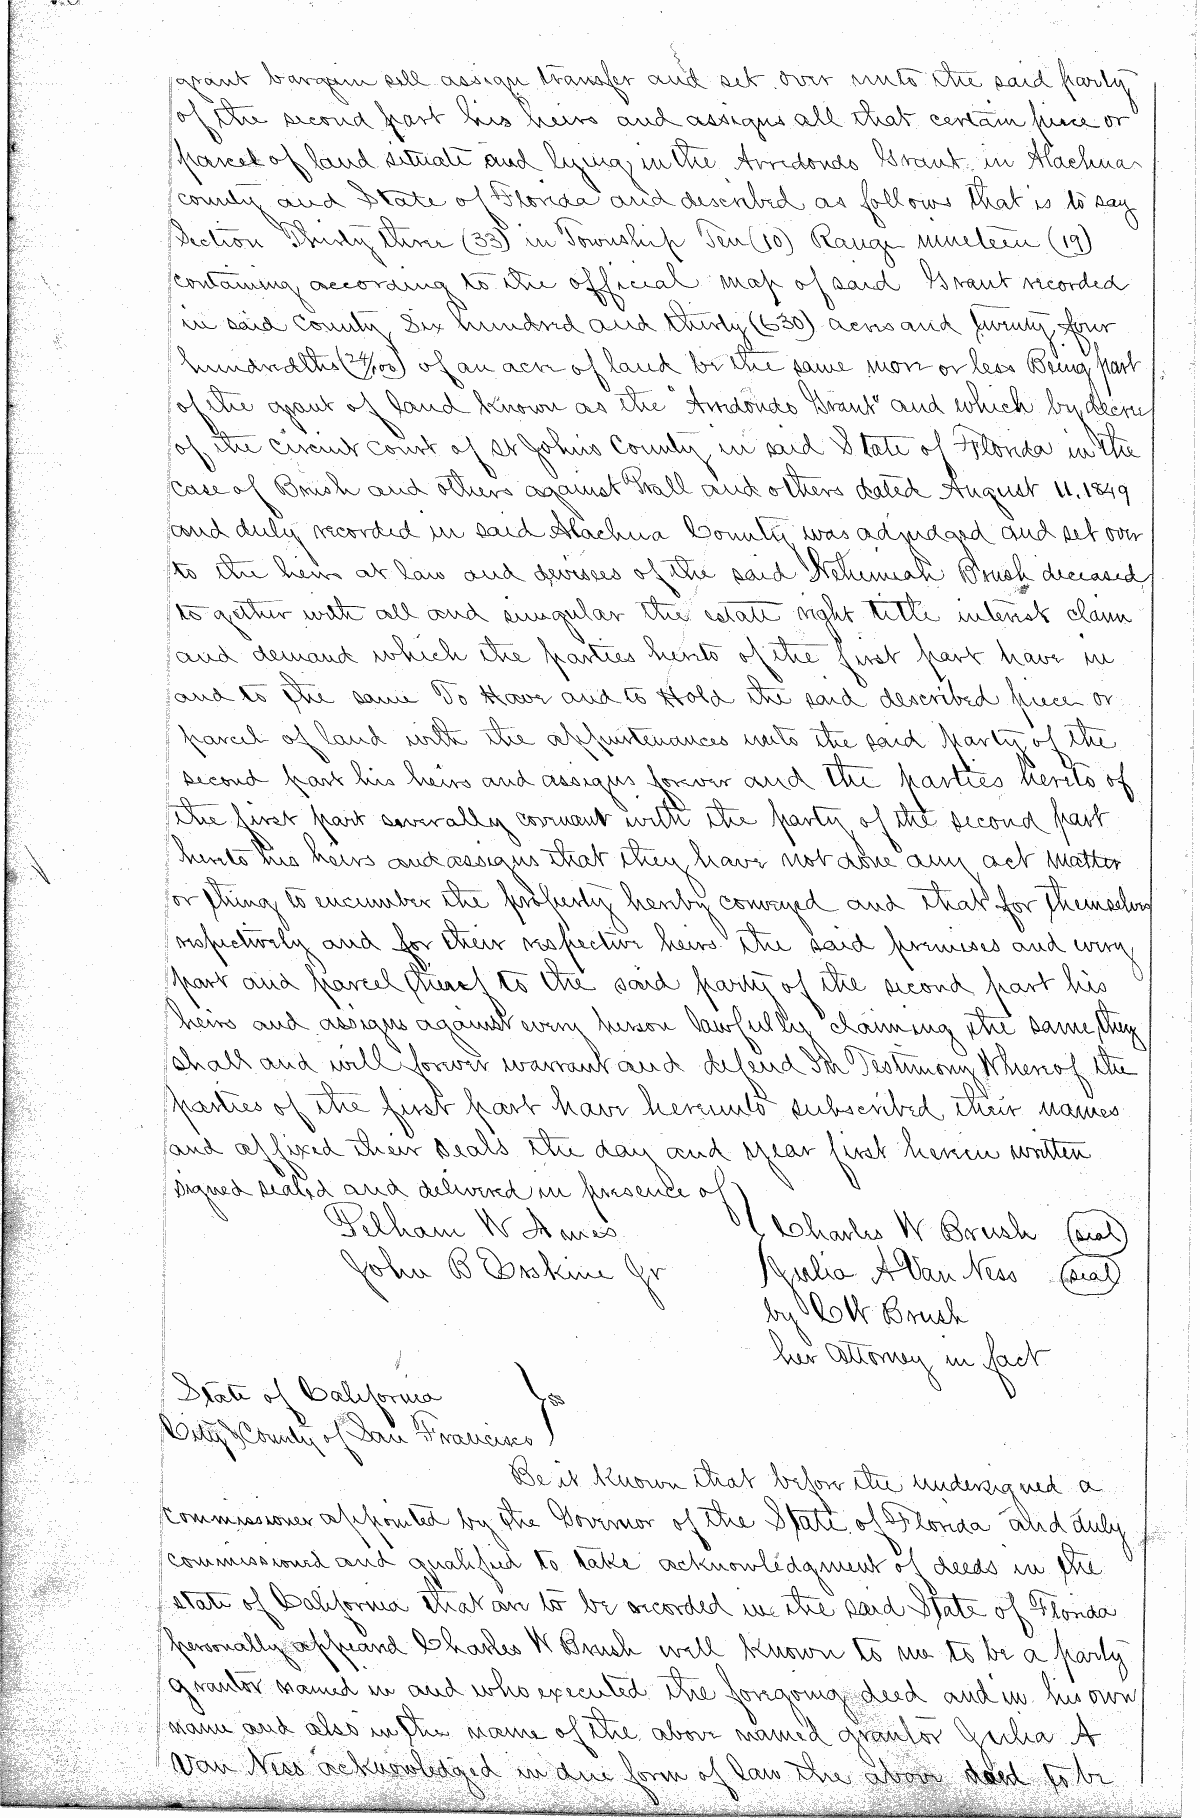 grant bargain sell assign transfer and set over unto the said party
of the second part his heirs and assigns all that certain piece or
parcel of land situate and lying in the Arredondo Grant in Alachua
county and State of Florida and described as follows that is to say
Section Thirty three (33) in Township Ten (10) Range nineteen (19)
containing according to the official map of said Grant recorded
in said County Six hundred and thirty (630) acres and twenty four
hundredths (24/100) of an acre of land be the same more or less Being part
of the grant of land known as the "Arredondo Grant" and which by decree
of the circuit court of St Johns County in said State of Florida in the
case of Brush and others against Hall and others dated August 11. 1849
and duly recorded in said Alachua County was adjudged and set over
to the heirs at law and devisees of the said Nehemiah Brush deceased
to gether with all and singular the estate right title interest claim
and demand which the parties hereto of the first part have in
and to the same To Have and to Hold the said described piece or
parcel of land with the appurtenances unto the said party of the
second part his heirs and assigns forever and the parties hereto of
the first part severally covenant with the party of the second part
hereto his heirs and assigns that they have not done any act matter
or thing to encumber the property hereby conveyed and that for themselves
respectively and for their respective heirs the said premises and every
part and parcel thereof to the said party of the second part his
heirs and assigns against every person lawfully claiming the same, they
shall and will forever warrant and defend In Testimony Whereof the
parties of the first part have hereunto subscribed their names
and affixed their seals the day and year first herein written
signed sealed and delivered in presence of
Pelham W Ames Charles W Brush (seal)
John B Erskine Jr Julia A Van Ness (seal)
by C W Brush
her Attorney in fact
State of California } ss
City & County of San Francisco
Be it known that before the undersigned a
commissioner appointed by the Governor of the State of Florida and duly
commissioned and qualified to take acknowledgment of deeds in the
state of California that are to be recorded in the said State of Florida
personally appeared Charles W Brush well known to me to be a party
grantor named in and who executed the foregoing deed and in his own
name and also in the name of the above named grantor Julia A
Van Ness acknowledged in due form of law the above deed to be